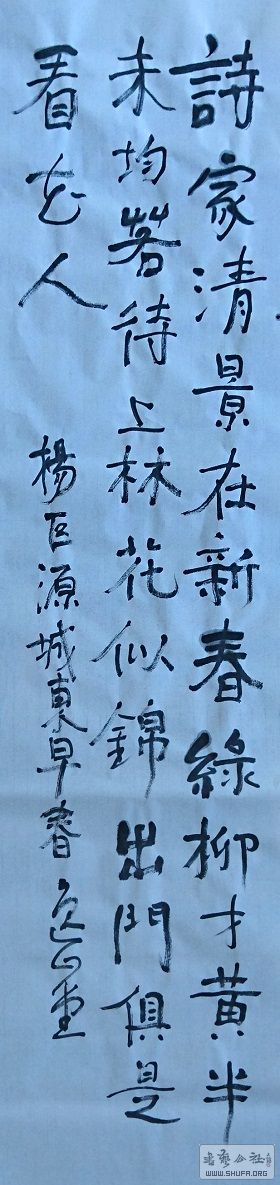 詩家清景在新春綠柳才黃半
未均若待上林花似錦出門俱是
看花人
楊巨源城東早春
WWW.SHUFA.ORG